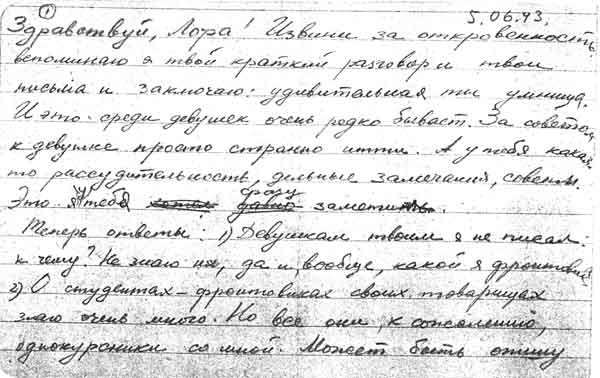 1
5.06.93.
Здравствуй, Лора! Извини за откровенность,
вспоминаю я твой краткий разговор и твои
письма и заключаю: удивительная ты умница.
И это среди девушек очень редко бывает. За советом
к девушке просто странно итти. А у тебя какая-
то рассудительность, дельные замечания, советы.
Это я у тебя сразу заметил.
Теперь ответы: 1) Девушкам твоим я не писал:
к чему? Не знаю их, да и вообще, какой я фронтовик
2) О студентах-фронтовиках своих товарищах
знаю очень много. Но все они, к сожалению,
однокурсники со мной. Может быть опишу